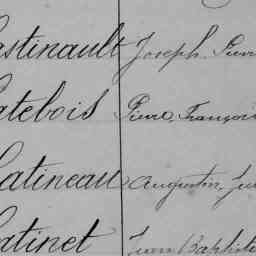 astinault Joseph Pierre
atebois Pierre François
atineau Augustin
atinet Jean Baptiste